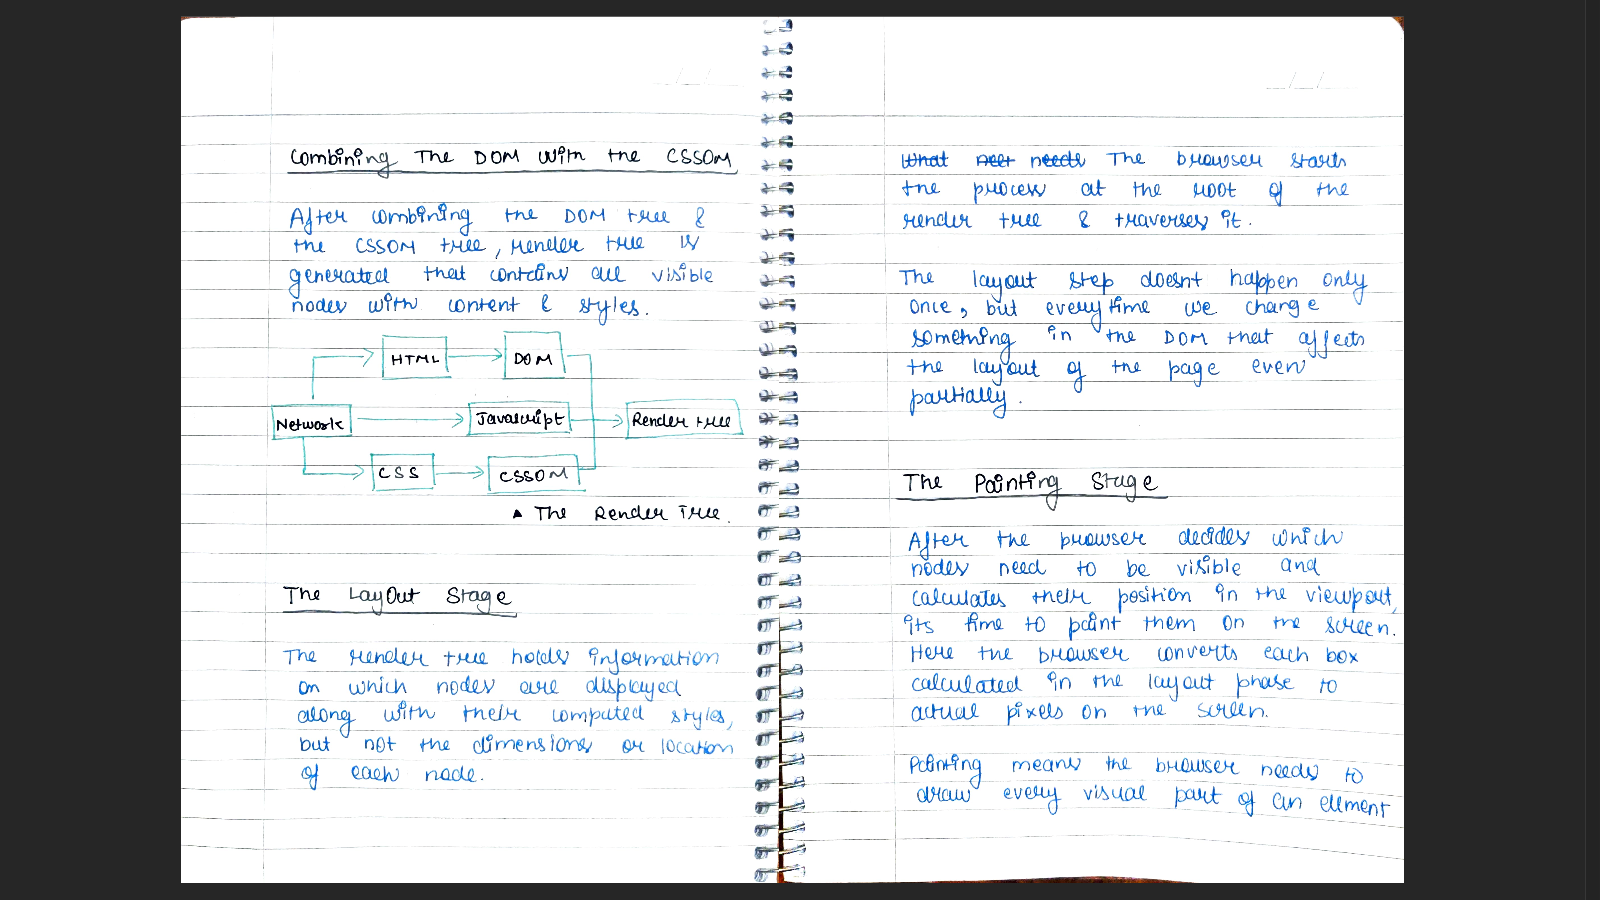 Combining The DOM with the CSSOM
After combining the DOM tree &
the CSSOM tree, render tree is
generated that contains all visible
nodes with content & styles.
HTML
DOM
Network
Javascript
Render tree
CSS
CSSOM
▲ The Render Tree.
The Layout Stage
The render tree holds information
on which nodes are displayed
along with their computed styles,
but not the dimensions or location
of each node.
What neet needs The browser starts
the process at the root of the
render tree & traverses it.
The layout step doesnt happen only
once, but everytime we change
something in the DOM that affects
the layout of the page even
partially.
The Painting Stage
After the browser decides which
nodes need to be visible and
calculates their position in the viewport,
its time to paint them on the screen.
Here the browser converts each box
calculated in the layout phase to
actual pixels on the screen.
Painting means the browser needs to
draw every visual part of an element